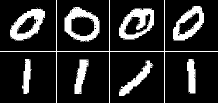 0 0 0 0
1 1 1 1